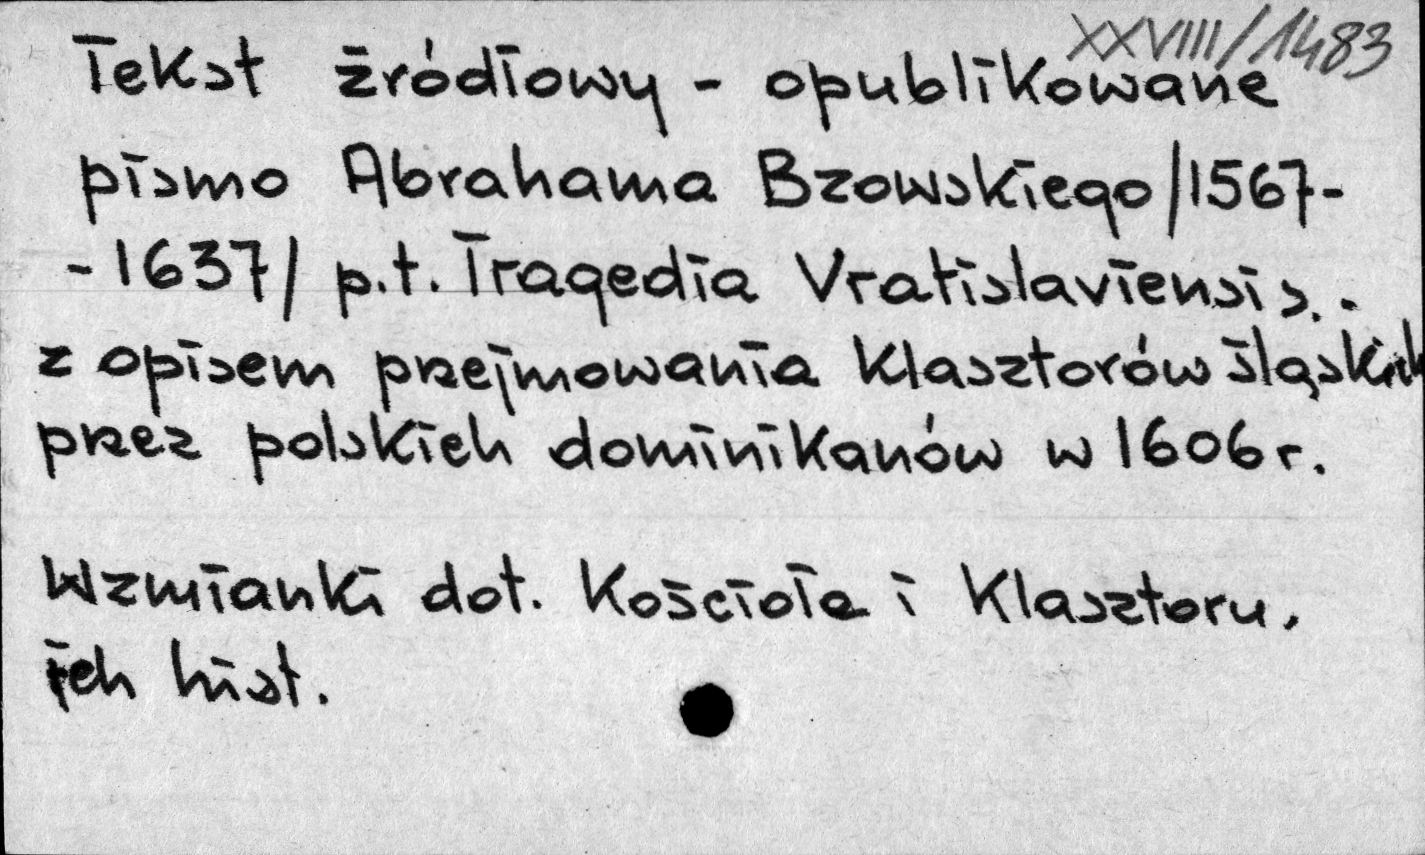 XXVIII/1483
Tekst źródłowy - opublikowane
pismo Abrahama Bzowskiego /1567-
-1637/ p.t. Tragedia Vratislaviensis. -
z opisem przejmowania klasztorów śląskich
przez polskich dominikanów w 1606 r.
Wzmianki dot. Kościoła i Klasztoru,
ich hist.